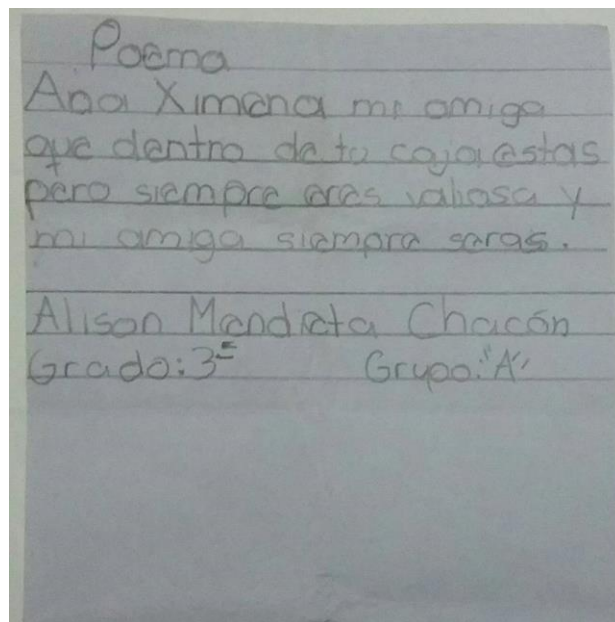 Poema
Ana Ximena mi amiga
que dentro de tu caja estas
pero siempre eres valiosa y
mi amiga siempre seras.
Alison Mendieta Chacón
Grado: 3º Grupo: "A"